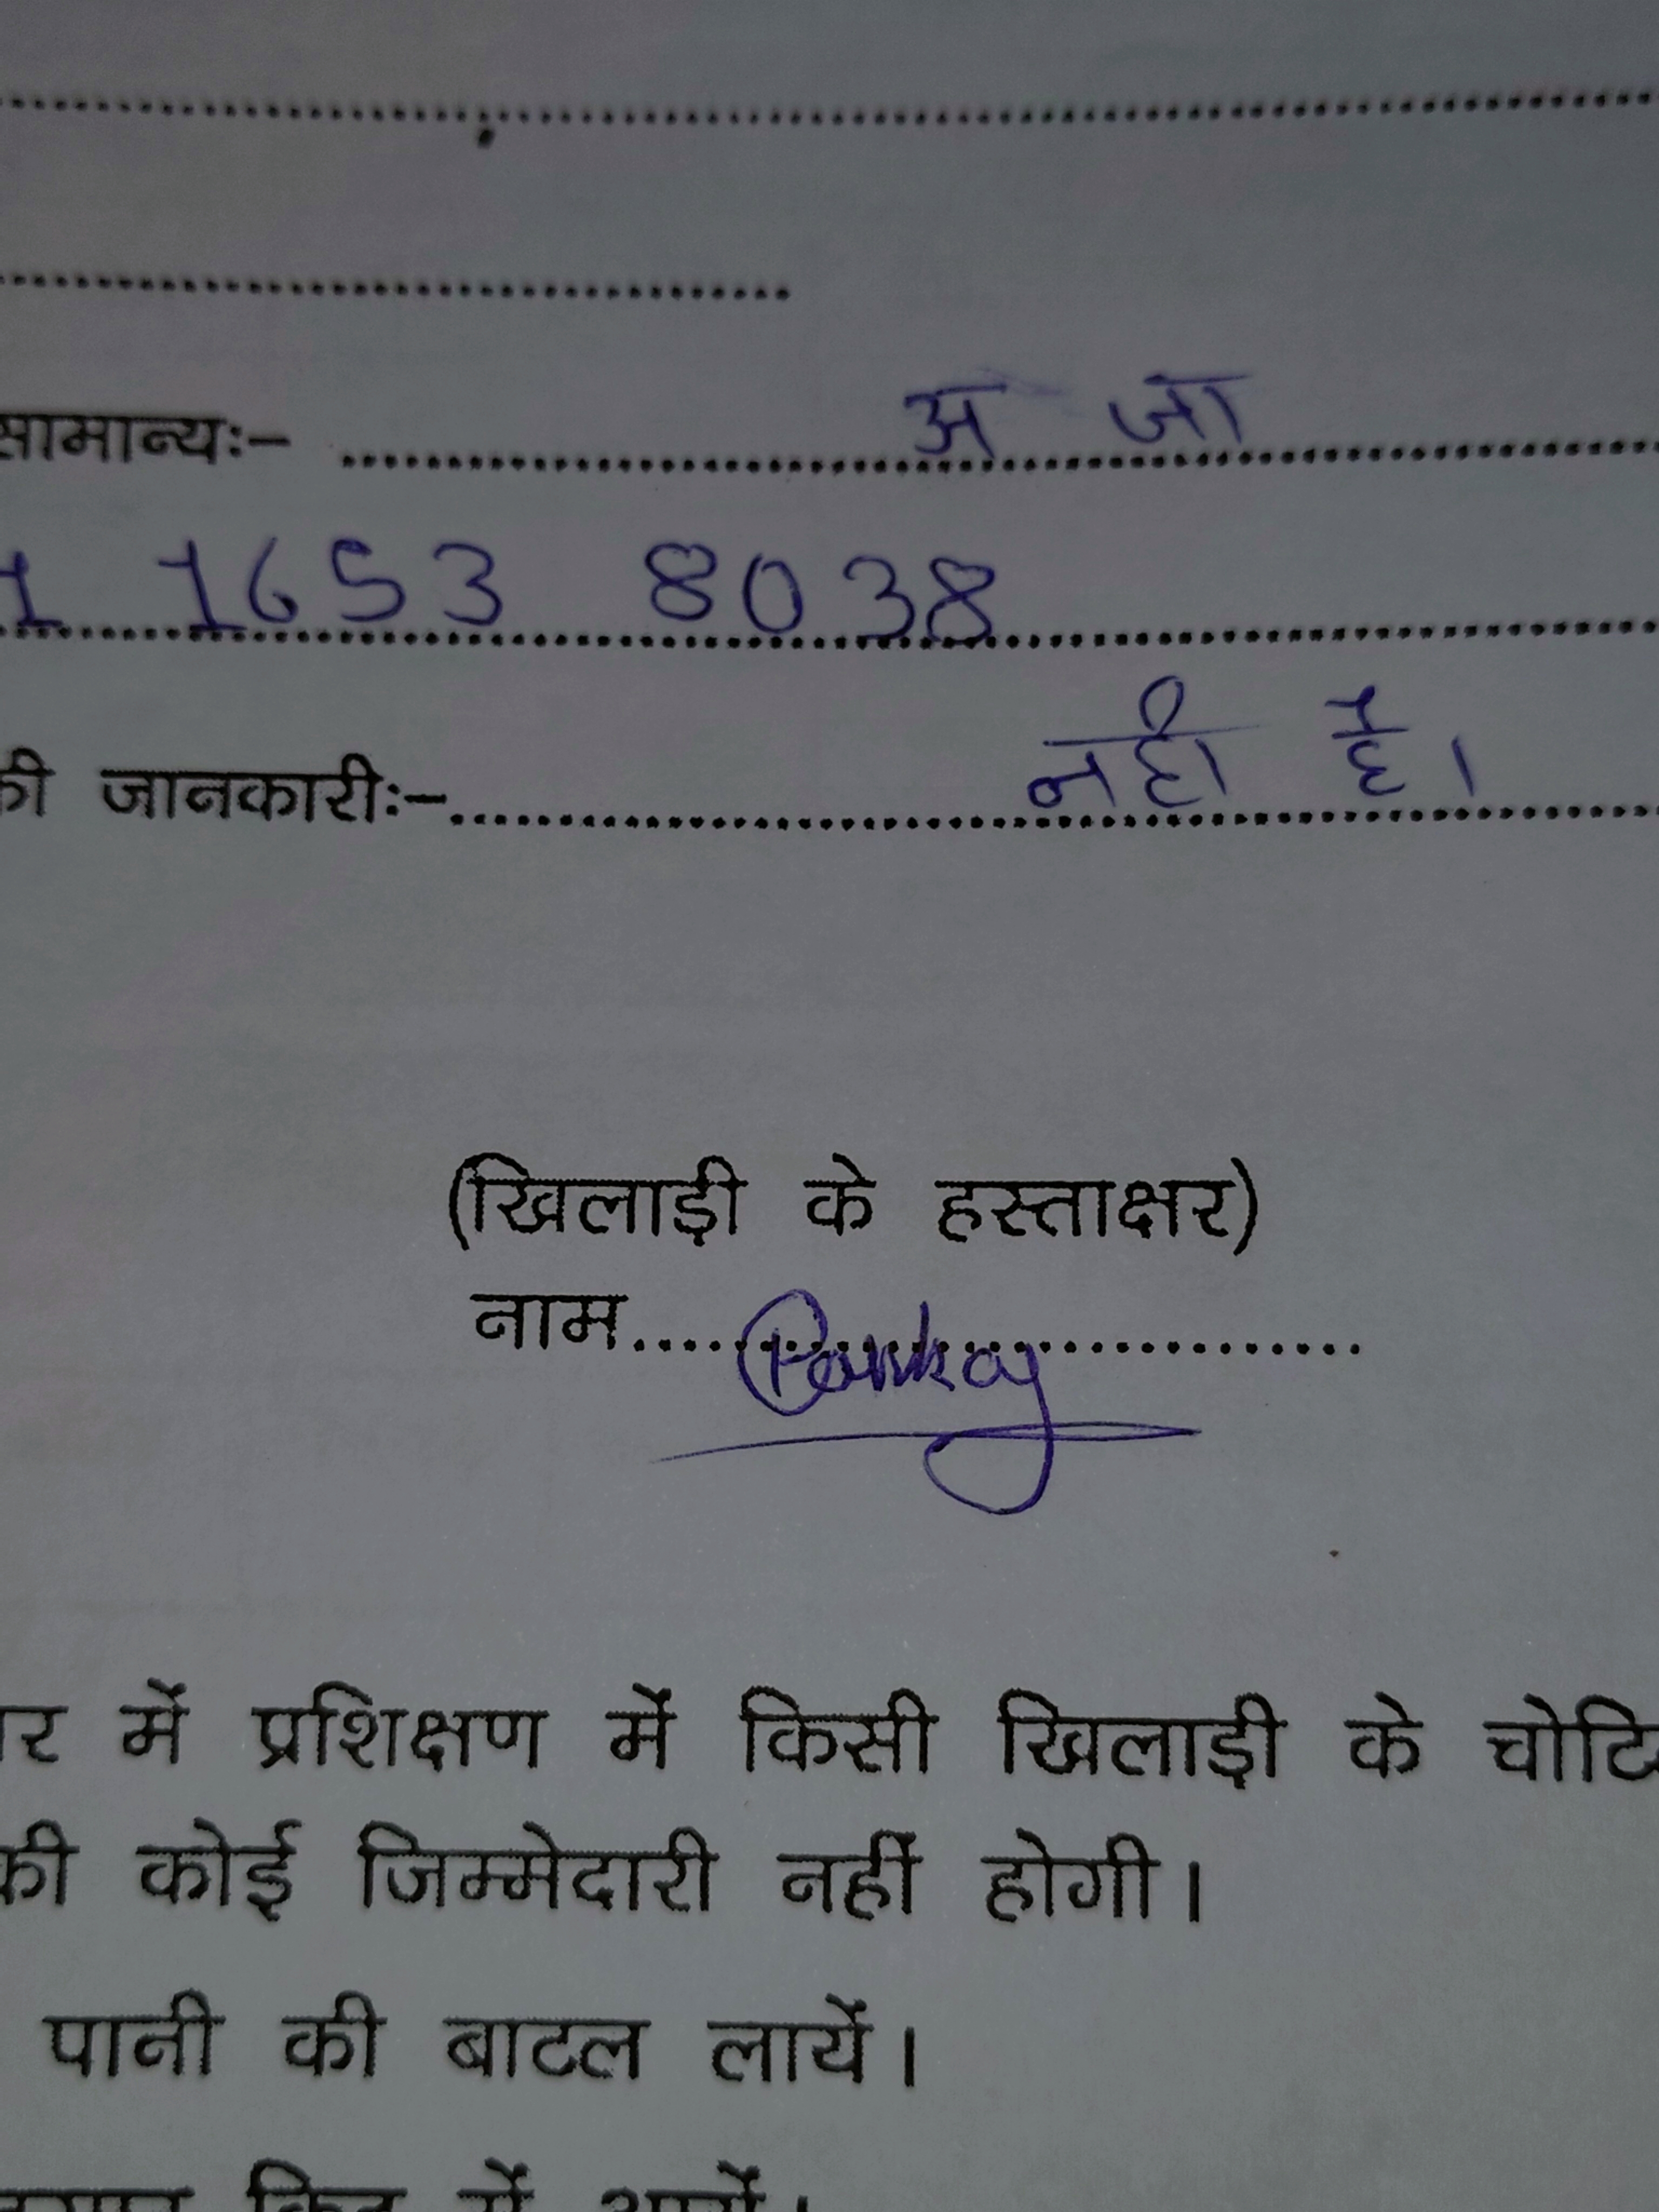 सामान्यः- .......... अ जा
1 1653 8038
की जानकारीः- .......... नही है।
(खिलाड़ी के हस्ताक्षर)
नाम.......... Pankaj
में प्रशिक्षण में किसी खिलाड़ी के
की कोई जिम्मेदारी नहीं होगी।
पानी की बाटल लायें।